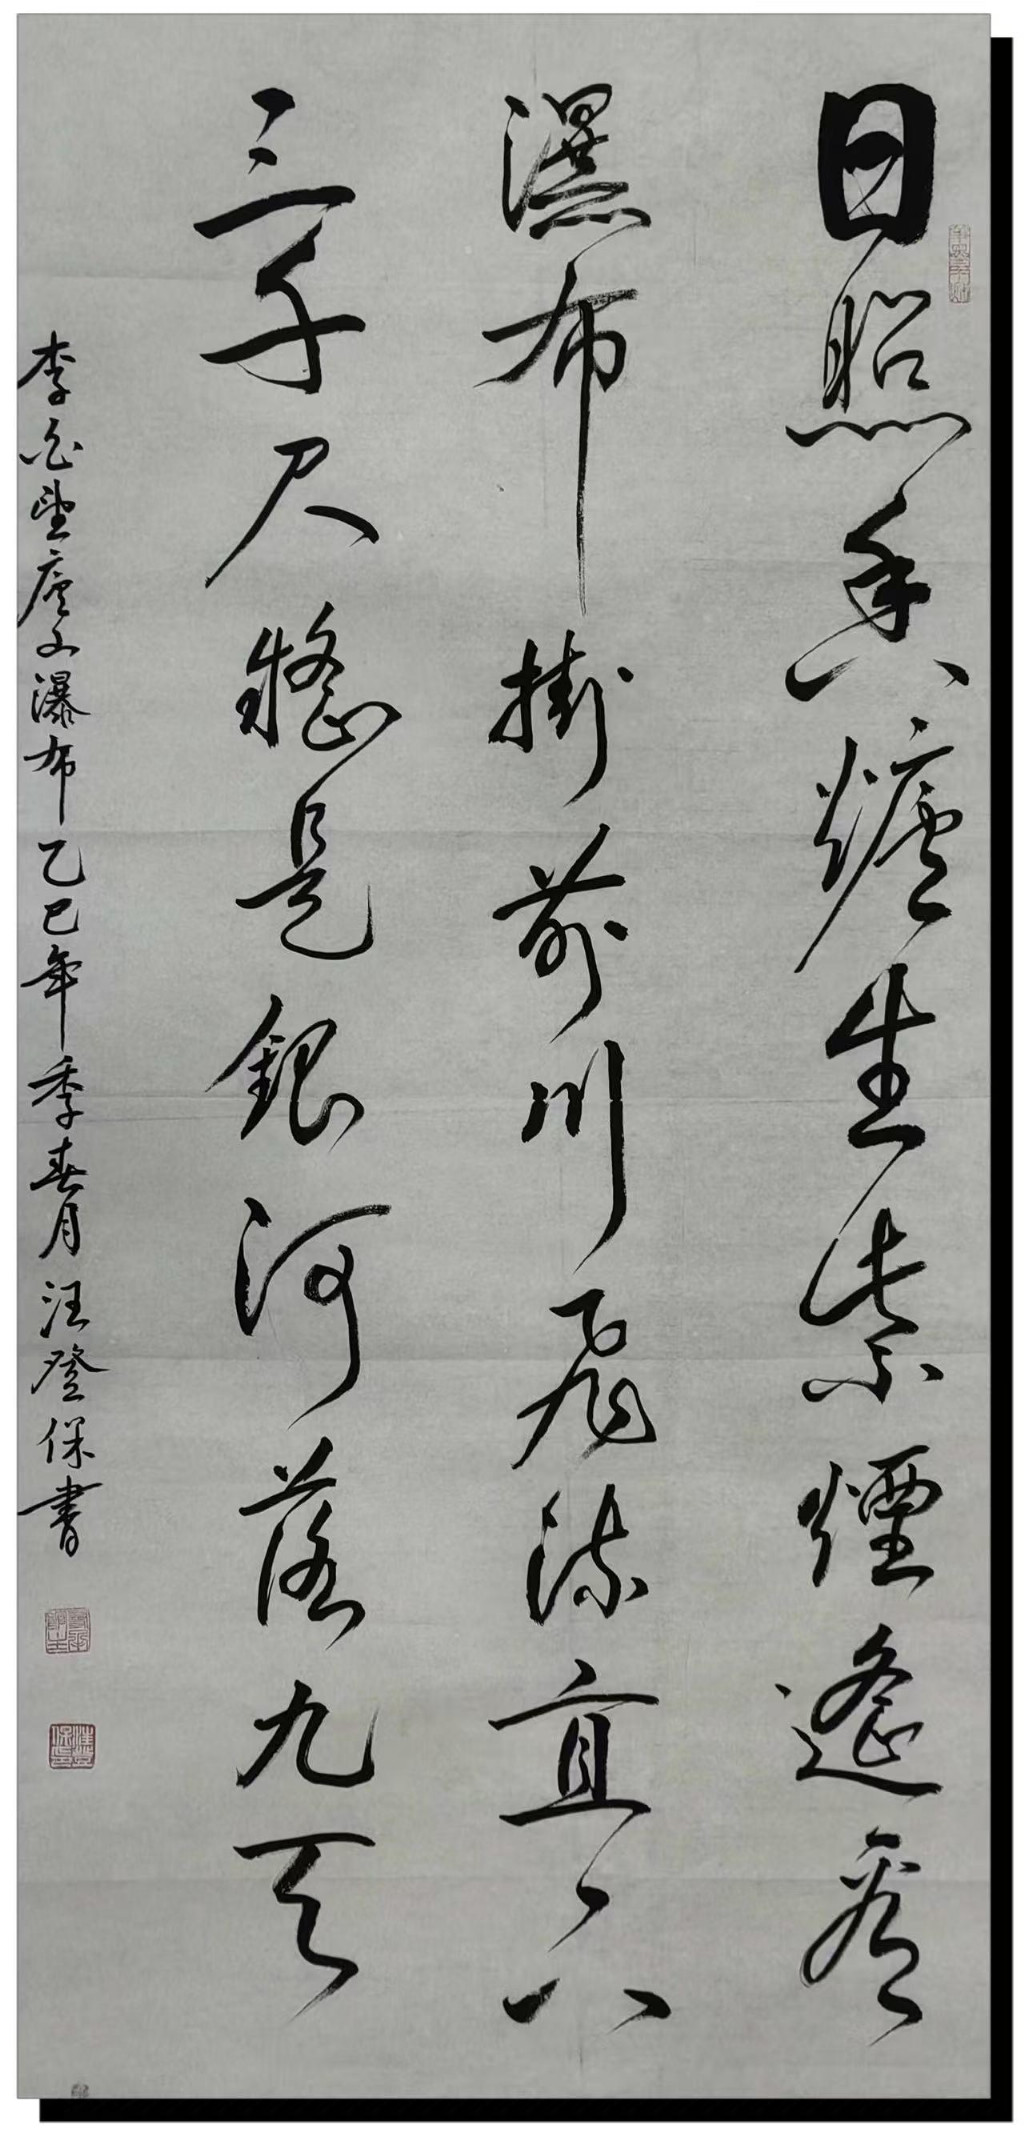 日照香爐生紫煙遙看
瀑布掛前川飛流直下
三千尺疑是銀河落九天
李白望廬山瀑布乙巳年季春月汪登保書